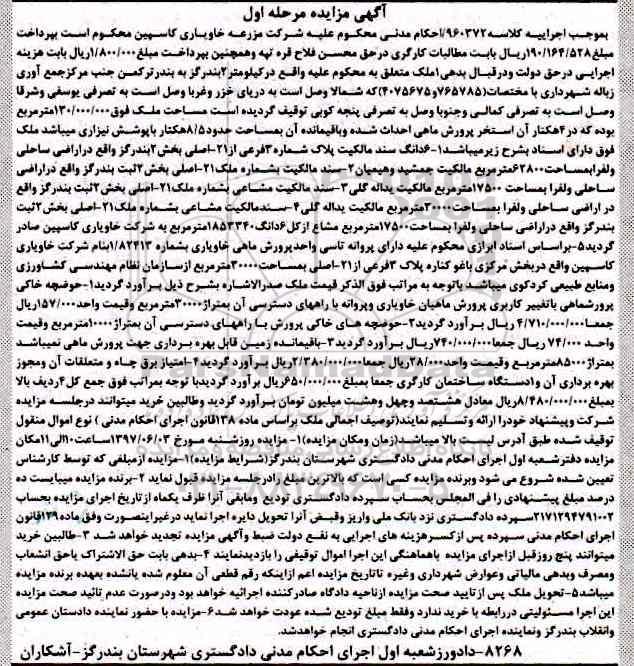 آگهی مزایده مرحله اول
بموجب اجراییه کلاسه۹۶۰۳۷۲/احکام مدنی محکوم علیه شرکت مزرعه خاویاری کاسپین محکوم است بپرداخت
مبلغ۱۹۰/۱۶۴/۵۲۸ریال بابت مطالبات کارگری درحق محسن فلاح قره تپه وهمچنین بپرداخت مبلغ۱/۸۰۰/۰۰۰ریال بابت هزینه
اجرایی درحق دولت ودرقبال بدهی۱ملک متعلق به محکوم علیه واقع درکیلومتر۲بندرگز به بندرترکمن جنب مرکزجمع آوری
زباله شهرداری با مختصات(۷۶۵۷۸۵و۴۰۷۵۶۷۵)که شمالا وصل است به دریای خزر وغربا وصل است به تصرفی یوسفی وشرقا
وصل است به تصرفی کمالی وجنوبا وصل به تصرفی پنجه کوبی توقیف گردیده است مساحت ملک فوق۱۳۰/۰۰۰/۰۰۰مترمربع
بوده که در۴هکتار آن استخر پرورش ماهی احداث شده وباقیمانده آن بمساحت حدود۸/۵هکتار باپوشش نیزاری میباشد ملک
فوق دارای اسناد بشرح زیرمیباشد۱-۶دانگ سند مالکیت پلاک شماره۳فرعی از۲۱-اصلی بخش۲بندرگز واقع دراراضی ساحلی
ولفرابمساحت۶۲۸۰۰مترمربع مالکیت جمشید وهیمیان۲-سند مالکیت بشماره ملک۲۱-اصلی بخش۲ثبت بندرگز واقع دراراضی
ساحلی ولفرا بمساحت ۱۷۵۰۰مترمربع مالکیت یداله گلی۳-سند مالکیت مشاعی بشماره ملک۲۱-اصلی بخش۲ثبت بندرگز واقع
در اراضی ساحلی ولفرا بمساحت۳۰۰۰۰مترمربع مالکیت یداله گلی۴-سندمالکیت مشاعی بشماره ملک۲۱-اصلی بخش۲ثبت
بندرگز واقع دراراضی ساحلی ولفرا بمساحت۱۷۵۰۰مترمربع مشاع ازکل۶دانگ۱۸۵۳۳۴۰مترمربع به شرکت خاویاری کاسپین صادر
گردید۵-براساس اسناد ابرازی محکوم علیه دارای پروانه تاسی واحدپرورش ماهی خاویاری بشماره ۱۸۲۴۱۳بنام شرکت خاویاری
کاسپین واقع دربخش مرکزی باغو کناره پلاک ۳فرعی از۲۱-اصلی بمساحت۳۰۰۰۰مترمربع ازسازمان نظام مهندسی کشاورزی
ومنابع طبیعی کردکوی میباشد باتوجه به مراتب فوق الذکر قیمت ملک صدرالاشاره بشرح ذیل برآورد گردید۱-حوضچه خاکی
پرورشماهی باتغییر کاربری پرورش ماهیان خاویاری وپروانه با راههای دسترسی آن بمتراژ۳۰۰۰۰مترمربع وقیمت واحد۱۵۷/۰۰۰ریال
جمعا۴/۷۱۰/۰۰۰/۰۰۰ ریال برآورد گردید۲-حوضچه های خاکی پرورش با راههای دسترسی آن بمتراژ۱۰۰۰۰مترمربع وقیمت
واحد ۷۴/۰۰۰ ریال جمعا۷۴۰/۰۰۰/۰۰۰ریال برآورد گردید۳-باقیمانده زمین قابل بهره برداری جهت پرورش ماهی نمیباشد
بمتراژ۸۵۰۰۰مترمربع وقیمت واحد۲۸/۰۰۰ریال جمعا۲/۳۸۰/۰۰۰/۰۰۰ریال برآورد گردید۴-امتیاز برق چاه و متعلقات آن ومجوز
بهره برداری آن و۱دستگاه ساختمان کارگری جمعا بمبلغ۶۵۰/۰۰۰/۰۰۰ریال برآورد گردیدبا توجه بمراتب فوق جمع کل۴ردیف بالا
بمبلغ۸/۴۸۰/۰۰۰/۰۰۰ریال معادل هشتصد وچهل وهشت میلیون تومان برآورد گردید وطالبین خرید میتوانند درجلسه مزایده
شرکت وپیشنهاد خودرا ارائه وتسلیم نمایند(توصیف اجمالی ملک براساس ماده ۱۳۸قانون اجرای احکام مدنی ) نوع اموال منقول
توقیف شده طبق آدرس لیست بالا میباشد(زمان ومکان مزایده)۱- مزایده روزشنبه مورخ ۱۳۹۷/۰۶/۰۳ساعت۱۰الی۱۱مکان
مزایده دفترشعبه اول اجرای احکام مدنی دادگستری شهرستان بندرگز(شرایط مزایده)۱-مزایده ازمبلغی که توسط کارشناس
تعیین شده شروع می شود وبرنده مزایده کسی است که بالاترین مبلغ رادرجلسه مزایده قبول نماید ۲-برنده مزایده میبایست ده
درصد مبلغ پیشنهادی را فی المجلس بحساب سپرده دادگستری تودیع ومابقی آنرا ظرف یکماه ازتاریخ اجرای مزایده بحساب
۲۱۷۱۲۹۴۷۹۱۰۰۲سپرده دادگستری نزد بانک ملی واریز وقبض آنرا تحویل دایره اجرا نماید درغیراینصورت وفق ماده۱۲۹قانون
اجرای احکام مدنی سپرده پس ازکسرهزینه های اجرایی به نفع دولت ضبط وآگهی مزایده تجدید خواهد شد ۳-طالبین خرید
میتوانند پنج روزقبل ازاجرای مزایده باهماهنگی این اجرا اموال توقیفی را بازدیدنمایند ۴-بدهی بابت حق الاشتراک یاحق انشعاب
ومصرف وبدهی مالیاتی وعوارض شهرداری وغیره تاتاریخ مزایده اعم ازاینکه رقم قطعی آن معلوم شده یانشده بعهده برنده مزایده
میباشد۵-تحویل ملک پس ازتایید صحت مزایده ازناحیه دادگاه صادرکننده اجرائیه خواهد بود ودرصورت عدم تائید صحت مزایده
این اجرا مسئولیتی دررابطه با خرید ندارد وفقط مبلغ تودیع شده عودت خواهد شد۶-مزایده با حضور نماینده دادستان عمومی
وانقلاب بندرگز ونماینده اجرای احکام مدنی دادگستری انجام خواهدشد.
۸۲۶۸-دادورزشعبه اول اجرای احکام مدنی دادگستری شهرستان بندرگز-آشکاران